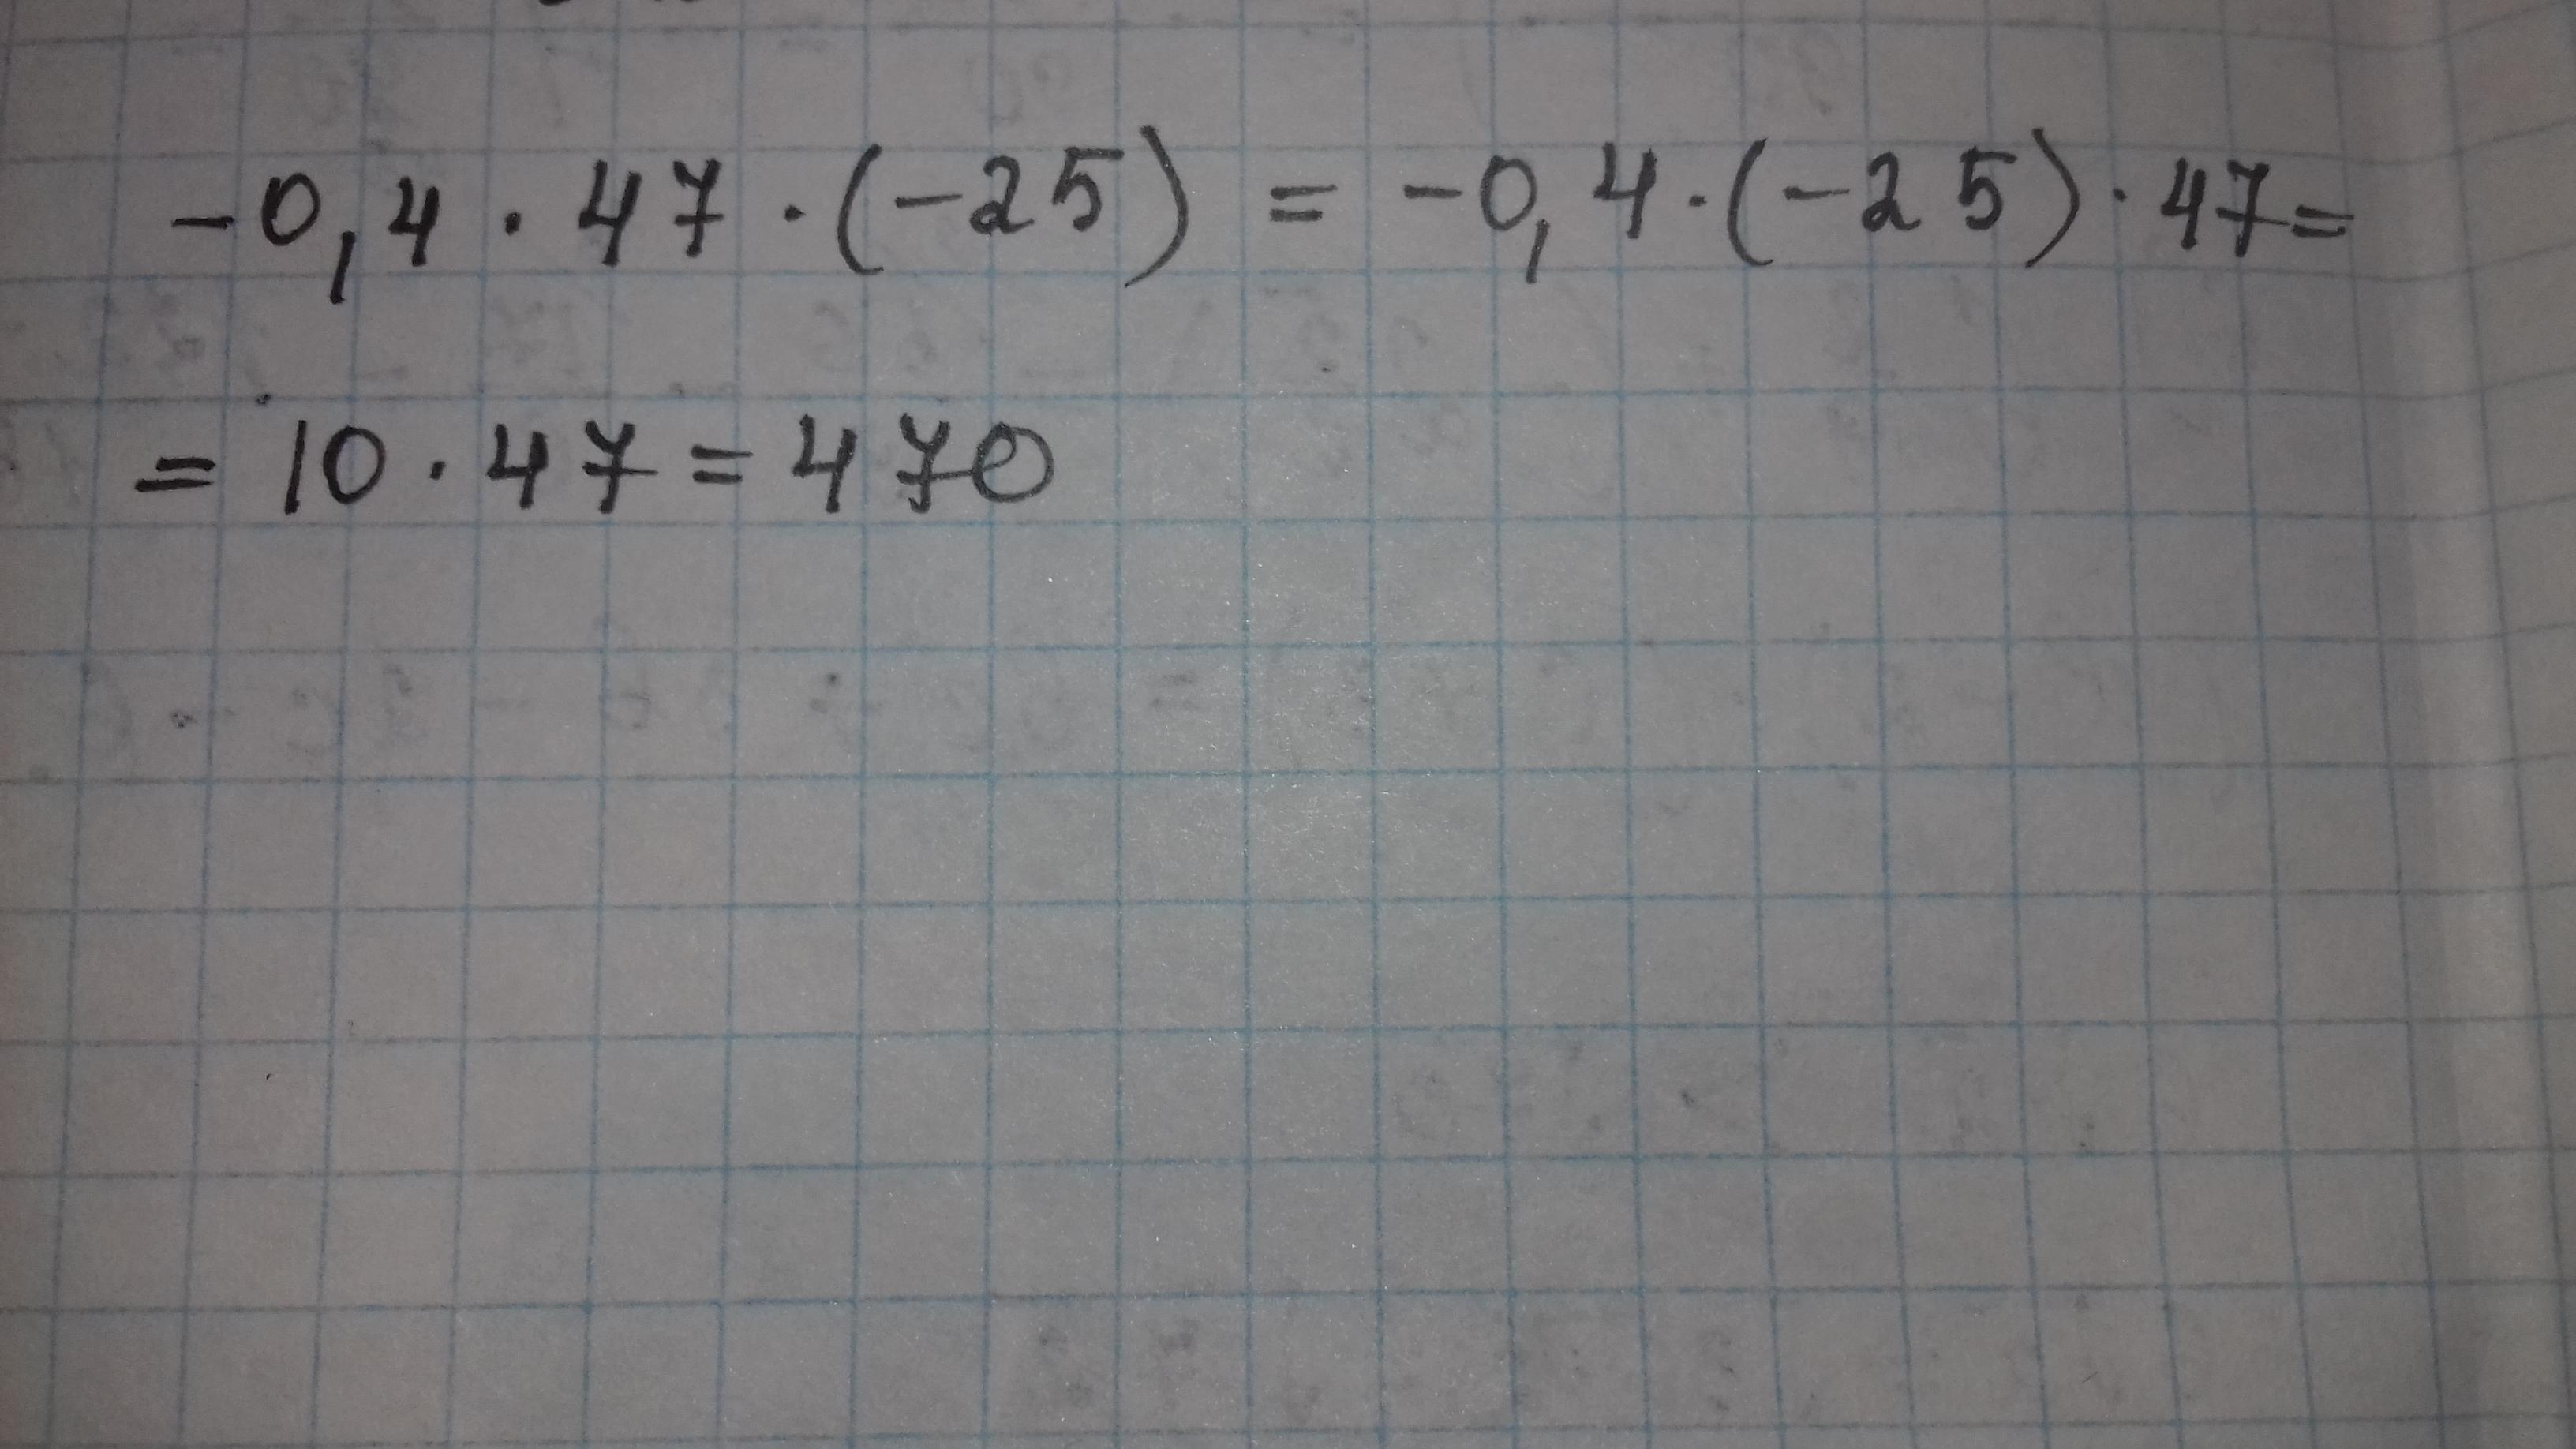 -0,4 · 47 · (-25) = -0,4 · (-25) · 47 =
= 10 · 47 = 470